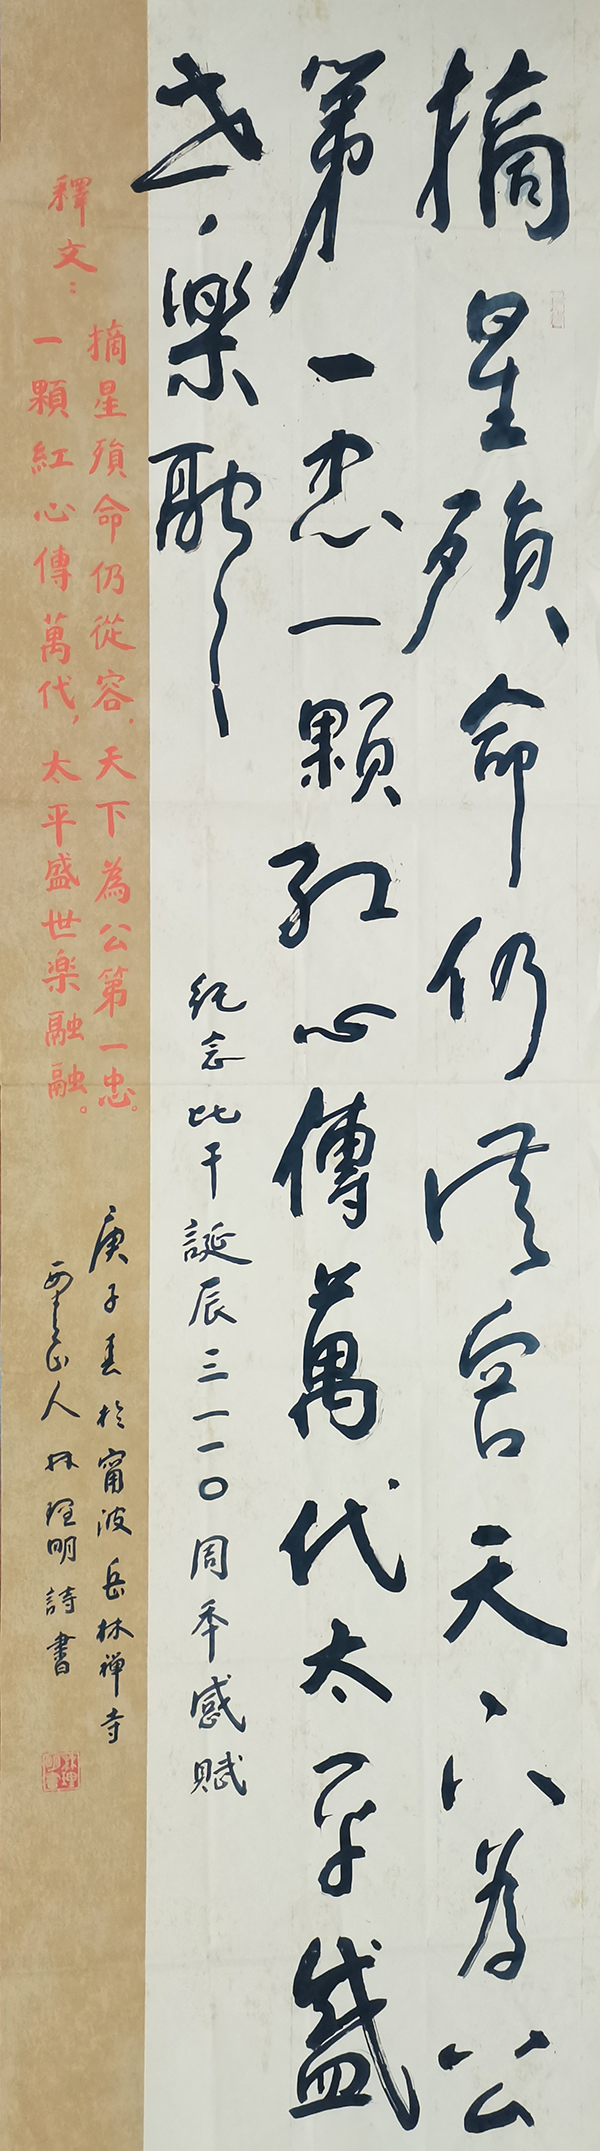 摘星殞命仍從容天下為公
第一忠一顆紅心傳萬代太平盛
世樂融融
紀念比干誕辰三一一〇周年感賦
釋文：
摘星殞命仍從容，天下為公第一忠。
一顆紅心傳萬代，太平盛世楽融融。
庚子春於甯波岳林禅寺
人林理明詩書